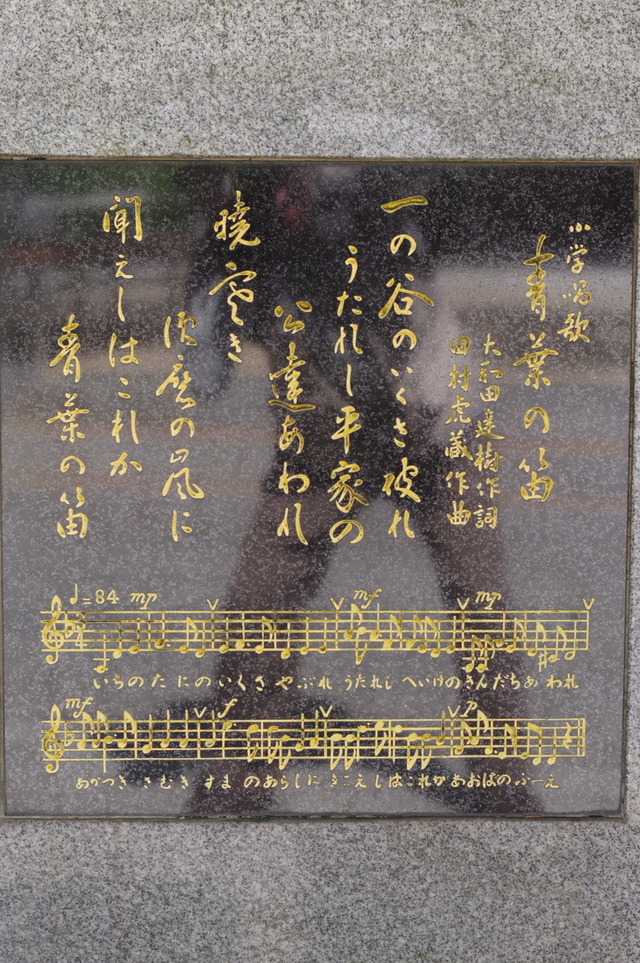 小学唱歌
青葉の笛
大和田建樹作詞
田村虎蔵作曲
一の谷のいくさ破れ
うたれし平家の
公達あわれ
暁寒き
須磨の嵐に
聞えしはこれか
青葉の笛
♩=84 mp mf mp
いちのたにのいくさやぶれ うたれし へいけのきんだちあわれ
mf f p
あかつきさむき すまのあらしに きこえしはこれか あおばのふーえ